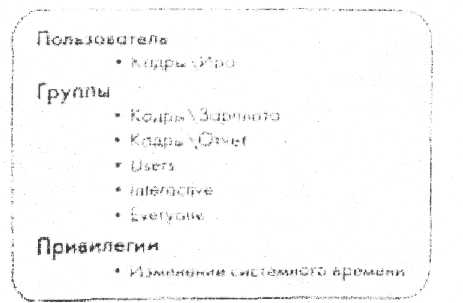 Пользователь
• Кадры\Ира
Группы
• Кадры\Зарплата
• Кадры\Отчет
• Users
• Interactive
• Everyone
Привилегии
• Изменение системного времени